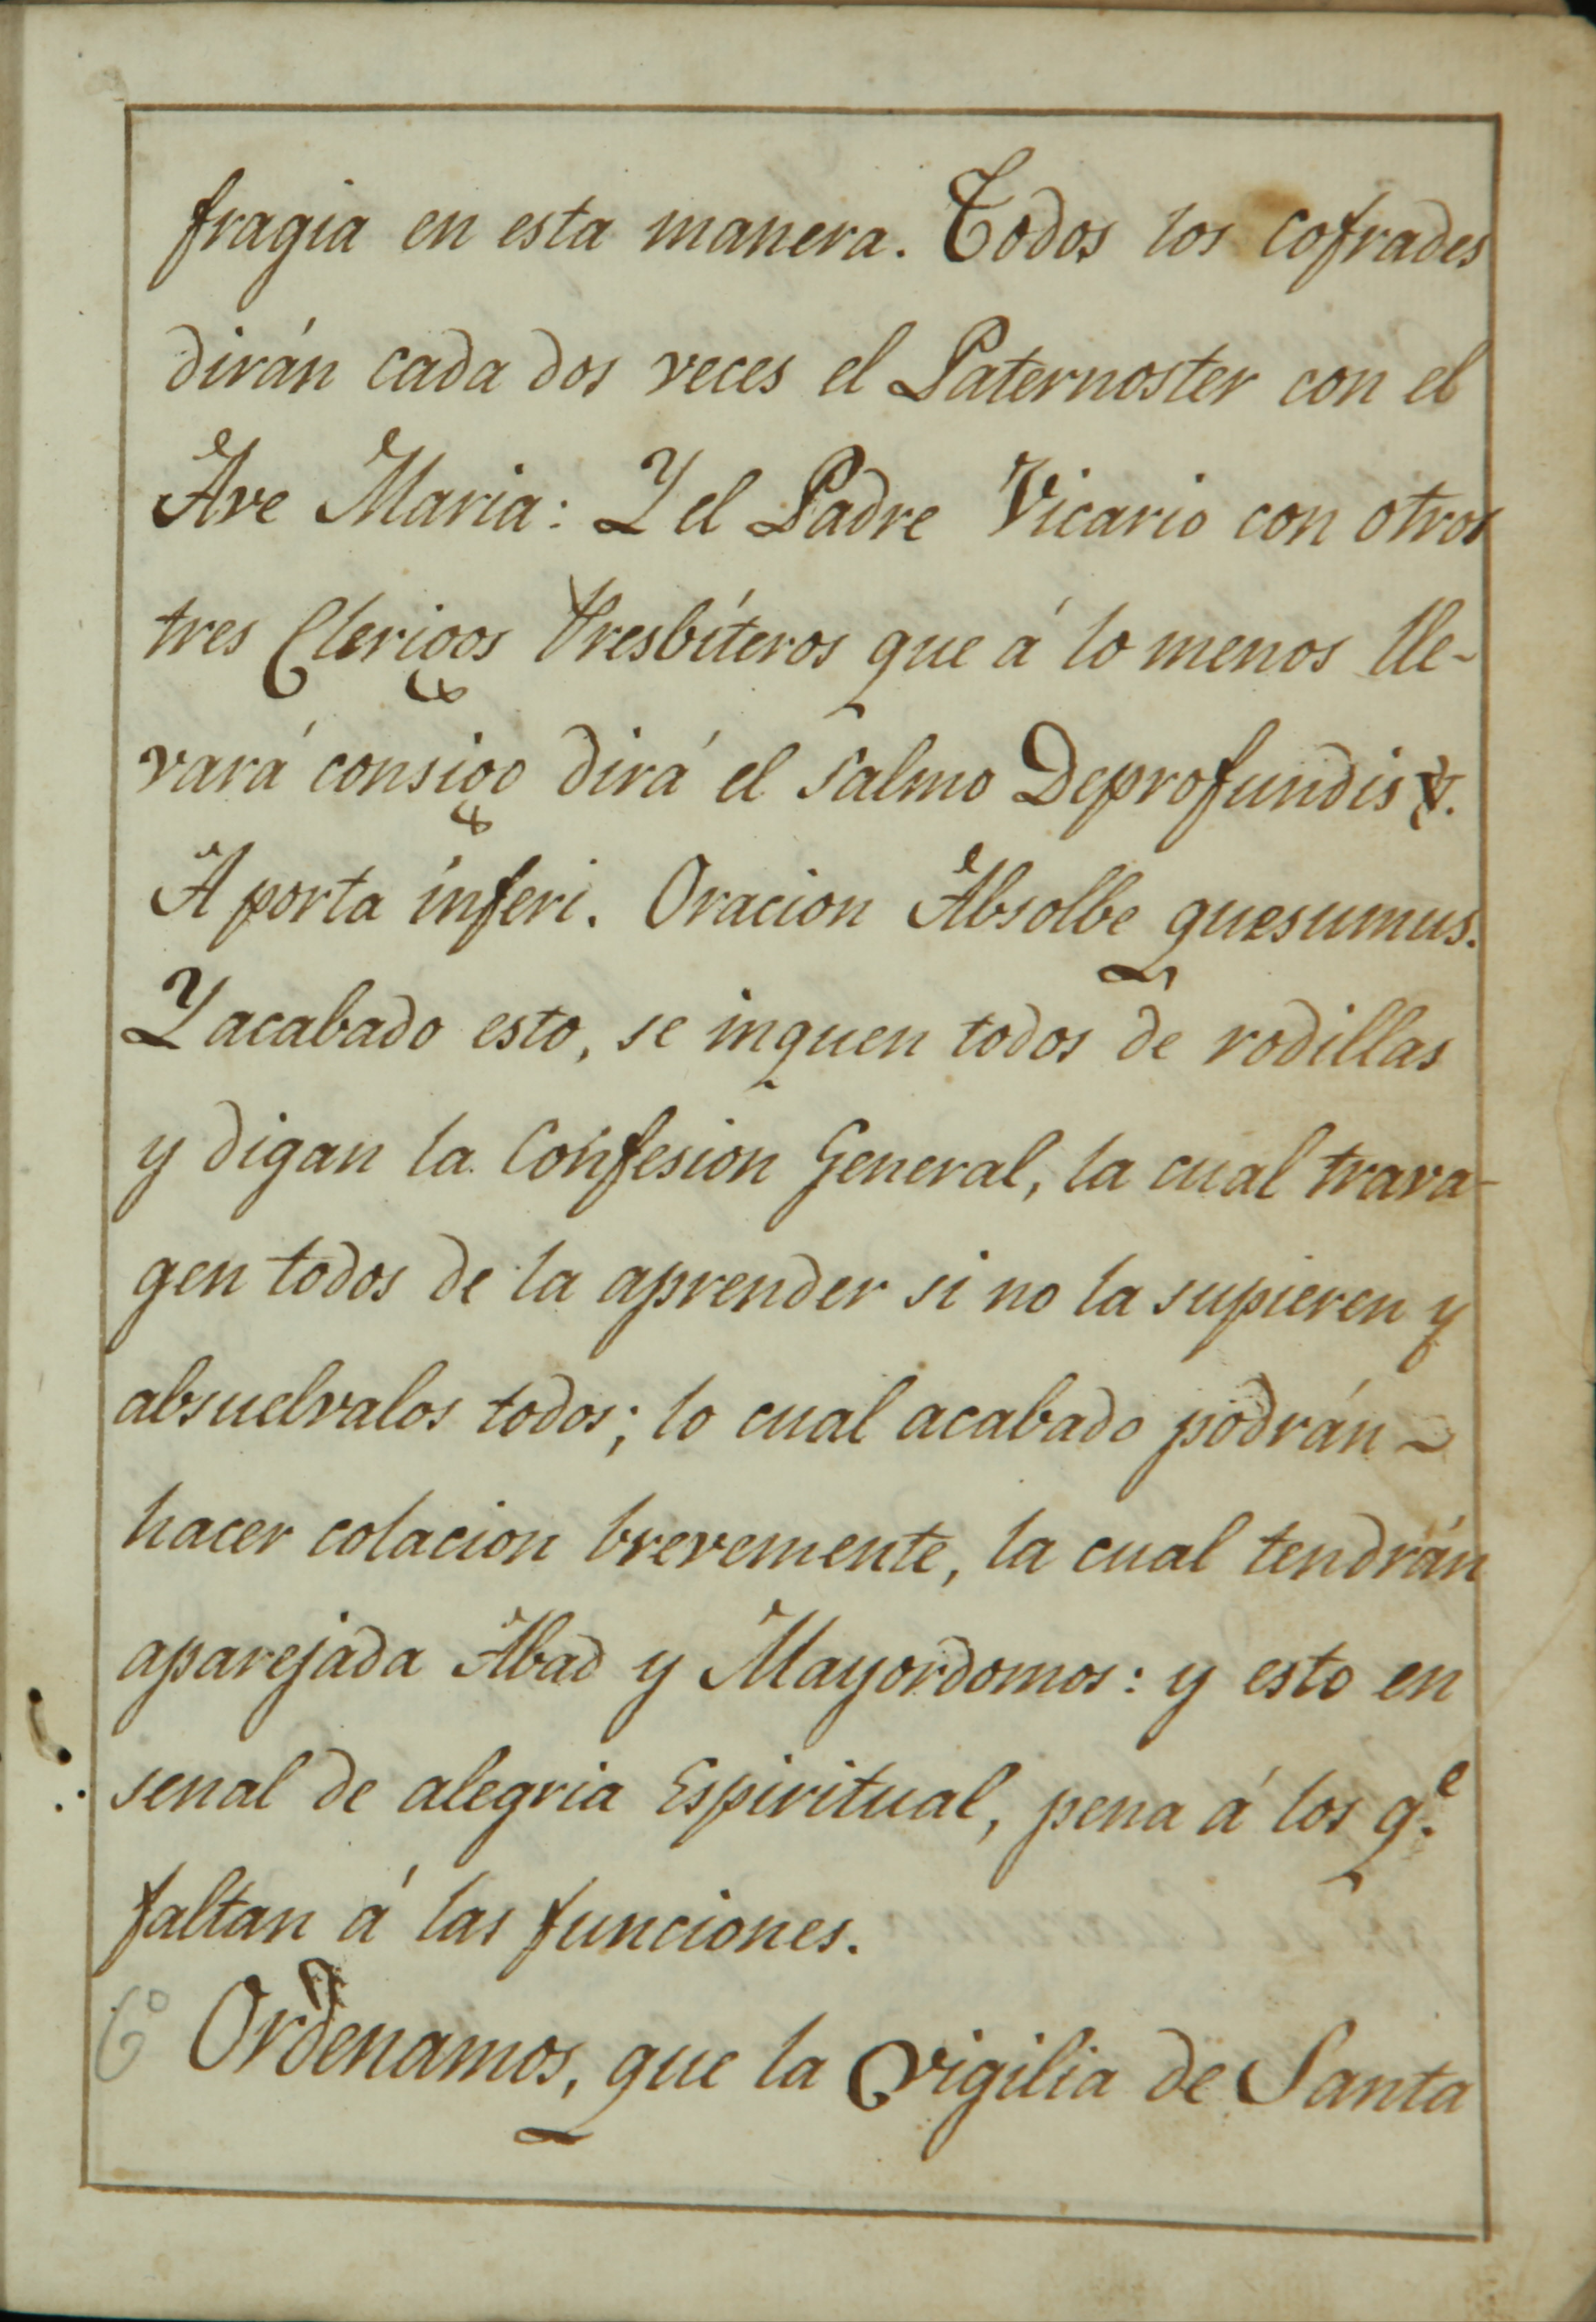 fragia en esta manera. Todos los cofrades
dirán cada dos veces el Paternoster con el
Ave Maria: Y el Padre Vicario con otros
tres Clerigos Presbíteros que á lo menos lle-
vará consigo dirá el salmo Deprofundis ℣.
A porta inferi. Oracion Absolbe quesumus.
Y acabado esto, se inquen todos de rodillas
y digan la Confesion General, la cual trava-
gen todos de la aprender si no la supieren y
absuelvalos todos; lo cual acabado podrán
hacer colacion brevemente, la cual tendrán
aparejada Abad y Mayordomos: y esto en
senal de alegria Espiritual, pena á los q.e
faltan á las funciones.
6º Ordenamos, que la vigilia de Santa